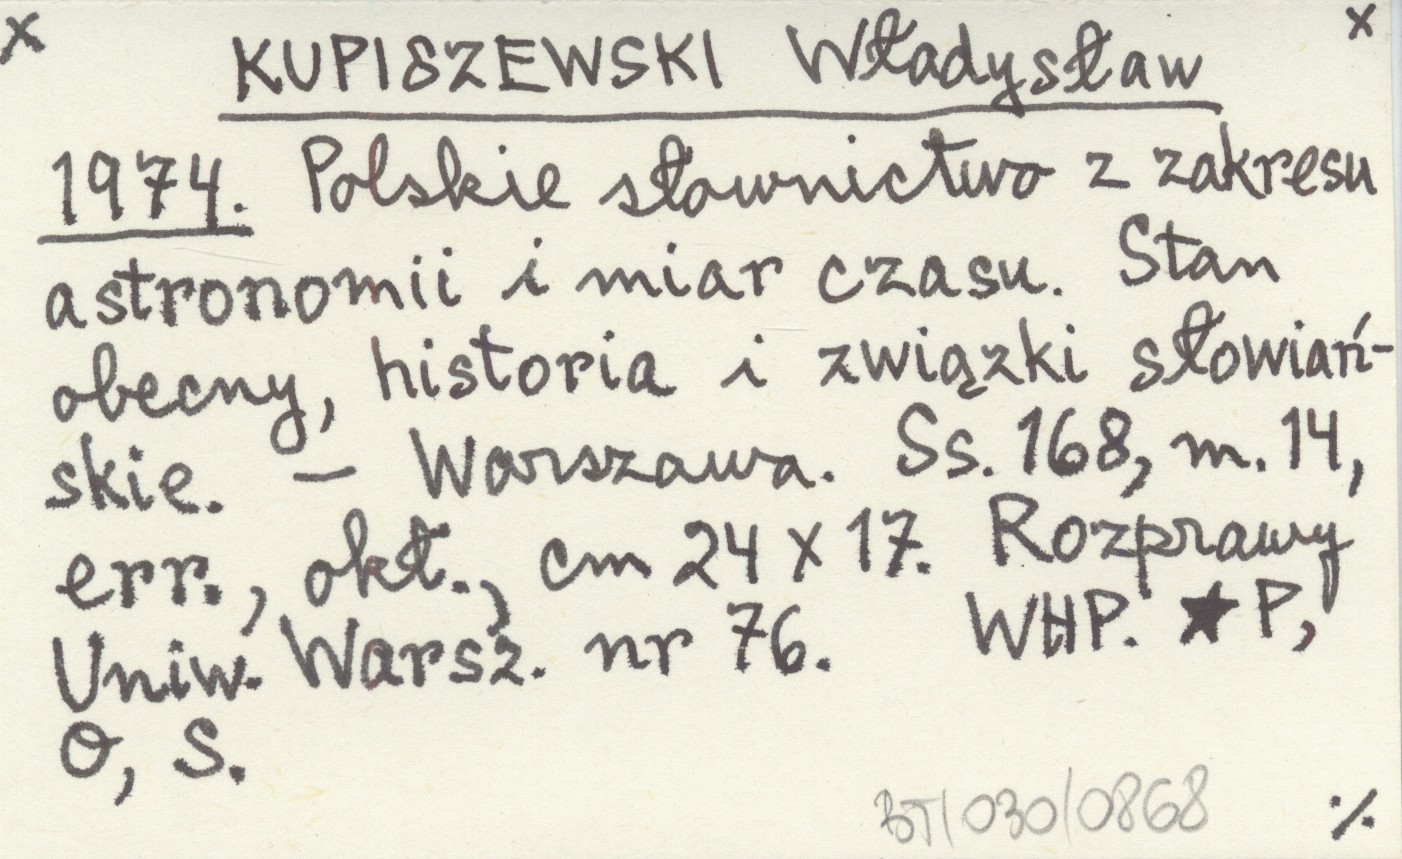 x x
KUPISZEWSKI Władysław
1974. Polskie słownictwo z zakresu
astronomii i miar czasu. Stan
obecny, historia i związki słowiań-
skie. – Warszawa. Ss. 168, m. 14,
err., okł., cm 24 x 17. Rozprawy
Uniw. Warsz. nr 76. WHP. ★ P,
O, S.
BT/030/0868 ·/.